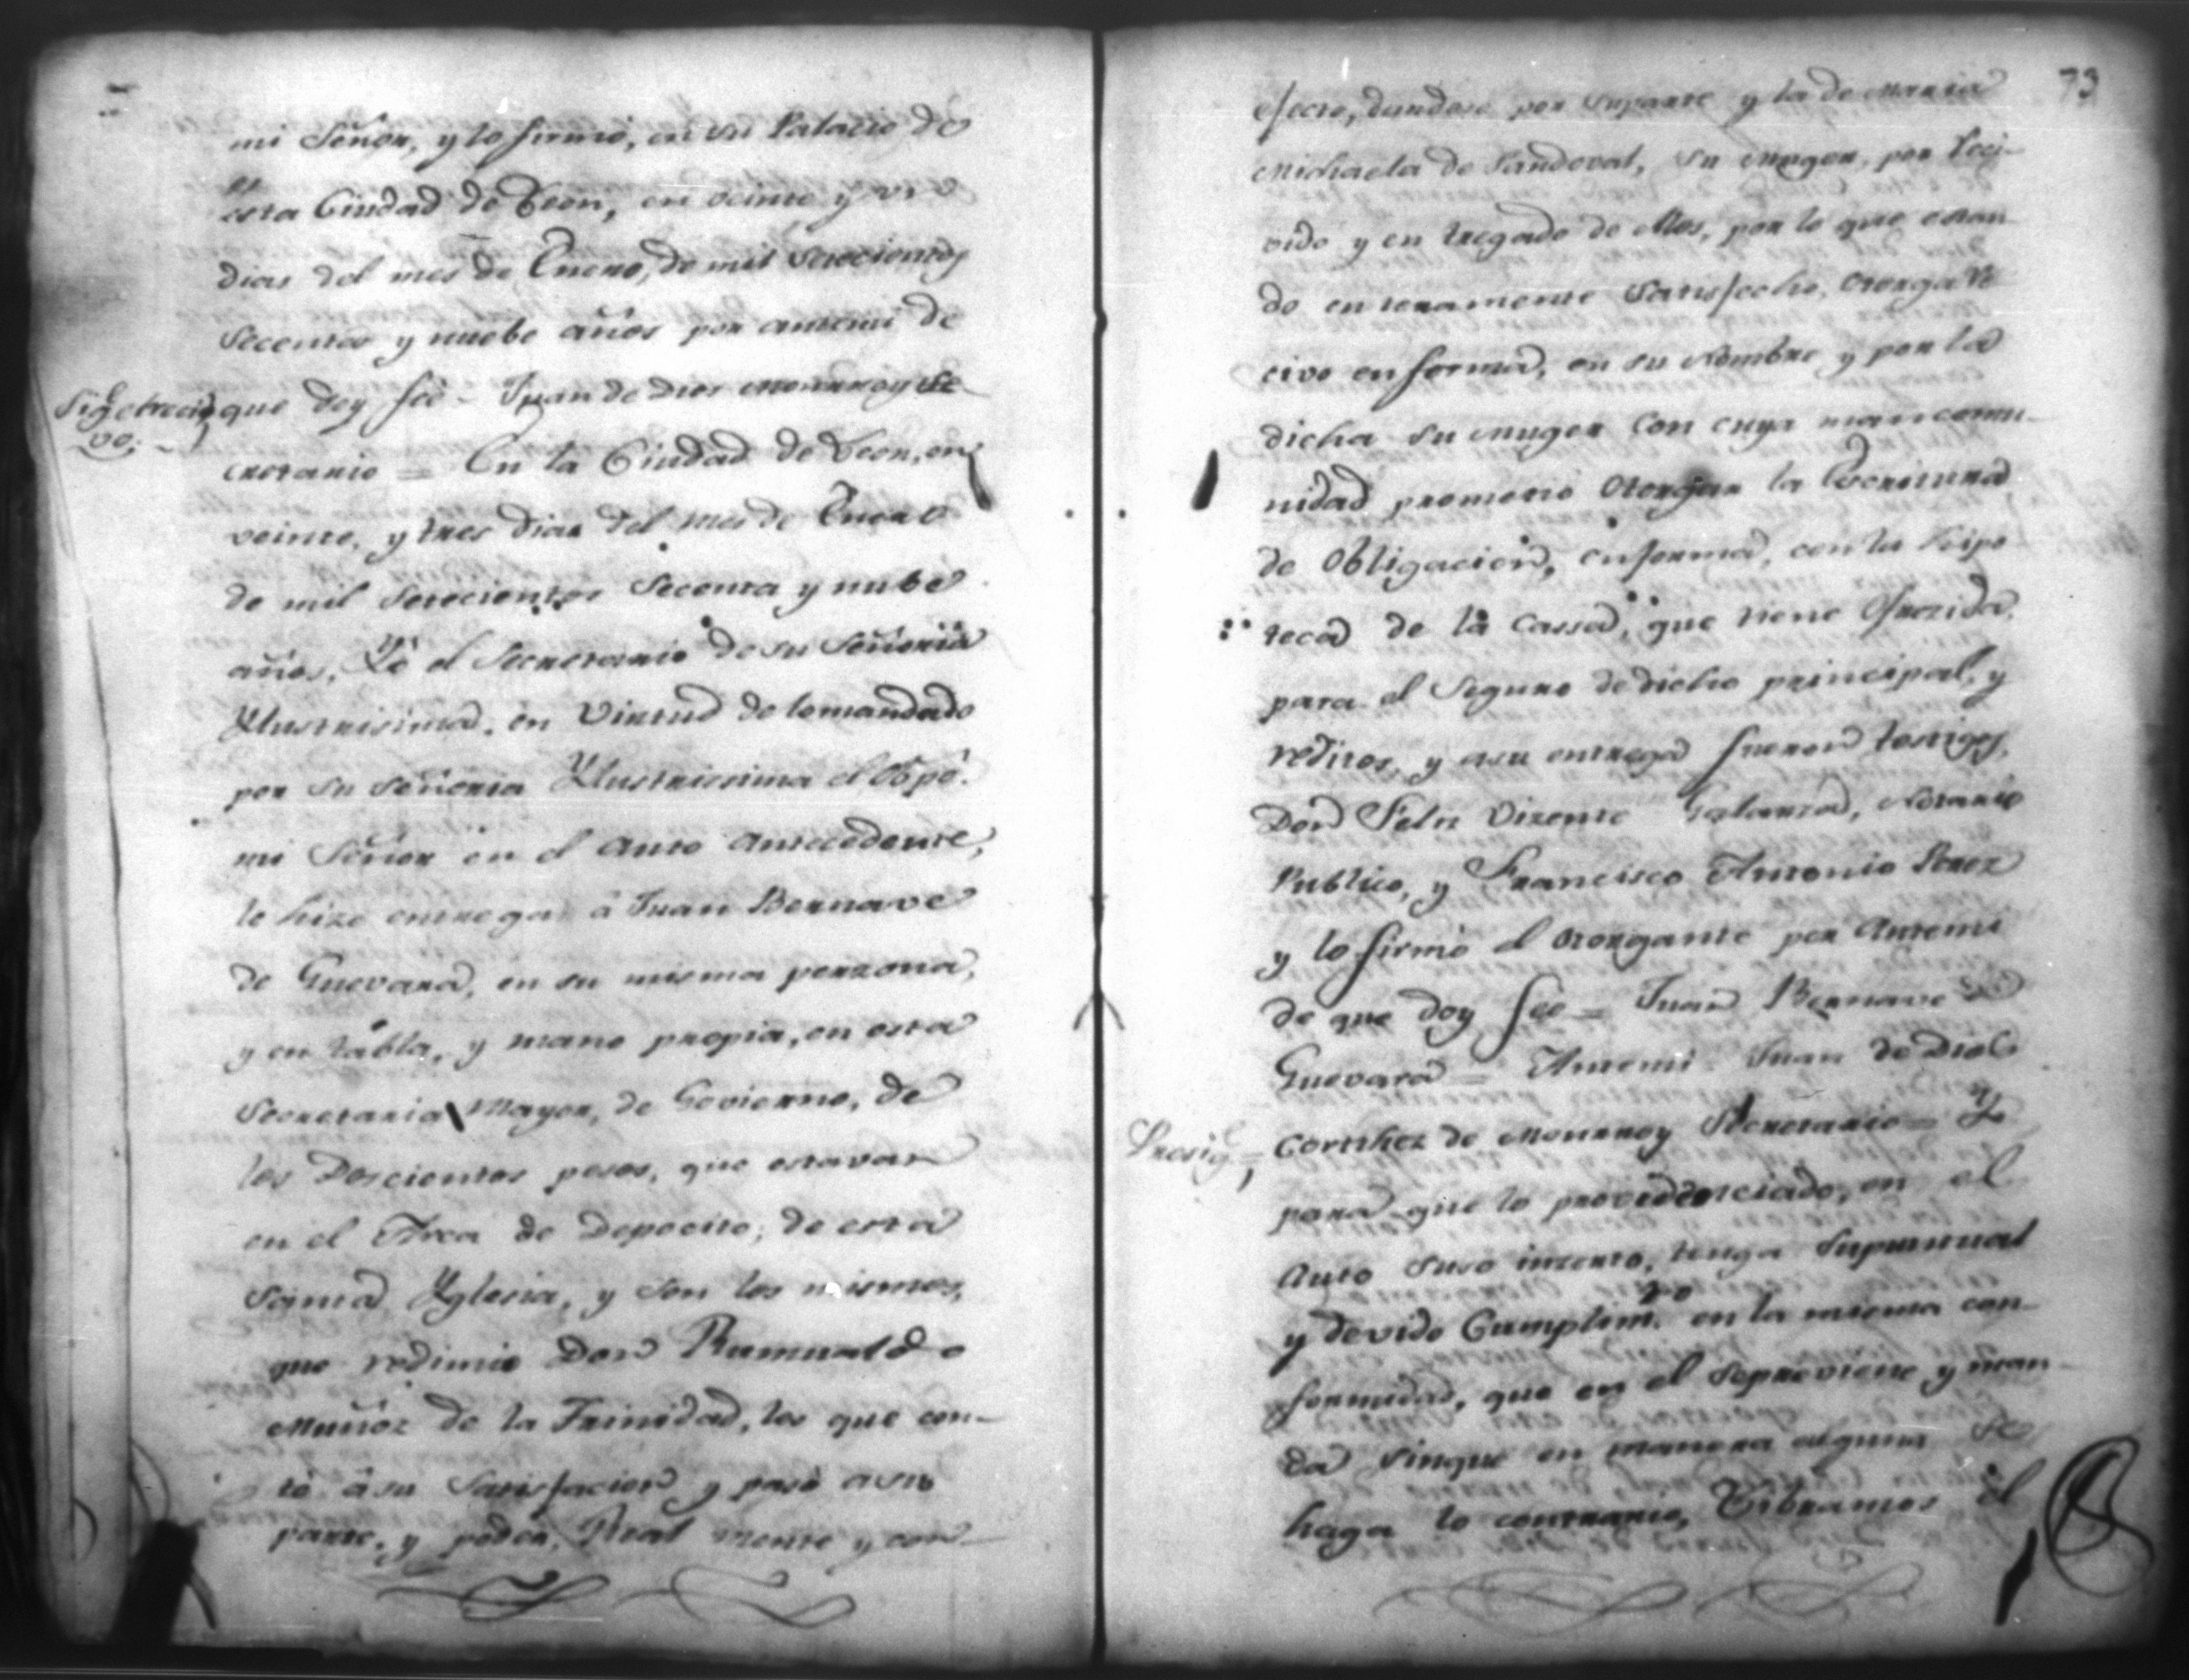 mi Señor, y lo firmó, en su Palacio de
esta Ciudad de Leon, en veinte y
dias del mes de Enero, de mil setecientos
secenta y nuebe años por antemi de
que doy feè = Juan de Dios Monrroy Se-
Sigue el reci
vo.
cretario = En la Ciudad de Leon, en
veinte, y tres dias del mes de Enero
de mil setecientos secenta y nuebe
años, Yò el Secretario de su Señoria
Yllustrisima, en Virtud de lo mandado
por su señoria Yllustrissima el Obpô.
mi Señor en el Auto Antecedente,
le hize entrega à Juan Bernave
de Guevara, en su misma perzona,
y en tabla, y mano propia, en esta
Secretaria Mayor, de Govierno, de
los Doscientos pesos, que estavan
en el Arca de Depocito, de esta
Santa Yglesia, y son los mismos,
que redimio Don Rumualdo
Muñoz de la Trinidad, los que con-
tò à su Satisfacion y pasò a su
parte, y poder, Real mente y con-
73
efecto, dandose por su parte y la de Maria
Michaela de Sandoval, su Muger, por reci-
vido y en tregado de ellos, por lo que estan
do en teramente Satisfecho, otorga Re
civo en forma, en su Nombre y por la
dicha su muger con cuya mancomu-
nidad prometio otorgar la Escritura
de Obligacion, en forma, con la hipo
teca de la cassa, que tiene ofrecida,
para el Seguro de dicho principal, y
reditos, y a su entrega fueron testigos,
Don Felix Vizente Galarza, Notario
Publico, y Francisco Antonio Perez
y lo firmó el otorgante por Antemi
de que doy feè = Juan Bernave de
Guevara = Antemi Juan de Dios
Prosig.
Cortthez de Monrroy Secretario = Y
para que lo providenciado, en el
Auto suso inzerto, tenga su puntual
y devido Cumplim.to en la misma con-
formidad, que en el se previene y man-
da sinque en manera alguna se
haga lo contrario, Libramos el